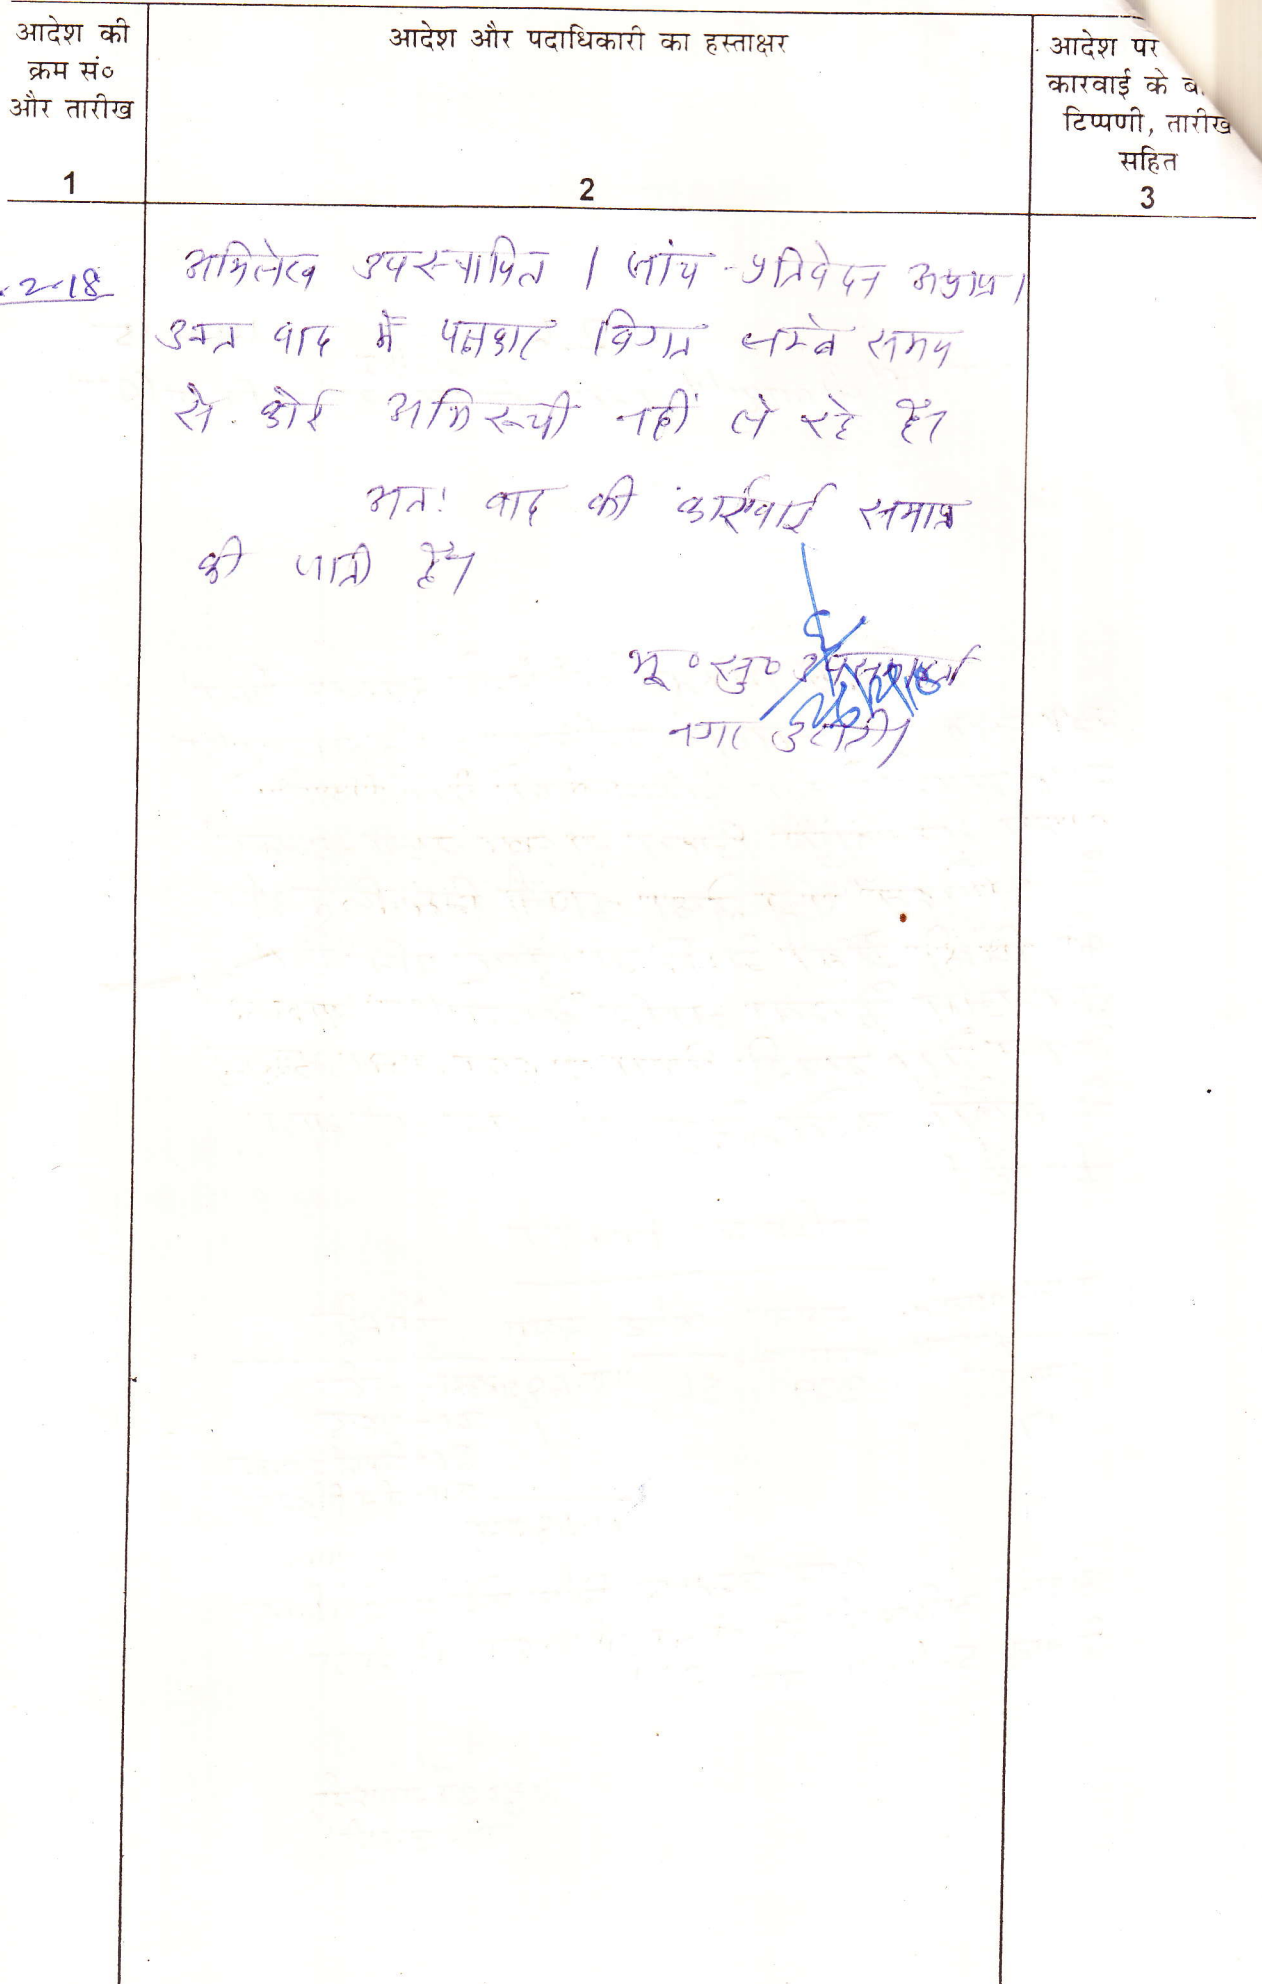 आदेश की
क्रम सं०
और तारीख
1
आदेश और पदाधिकारी का हस्ताक्षर
2
आदेश पर
कारवाई के
टिप्पणी, तारीख
सहित
3
.2-18
अभिलेख उपस्थापित । जांच प्रतिवेदन अप्राप्त ।
उक्त वाद में पक्षकार विगत लम्बे समय
से कोई अभिरूची नहीं ले रहे हैं।
अतः वाद की कार्रवाई समाप्त
की जाती है।
भू० सु० उपसमाहर्ता
नगर उंटारी।